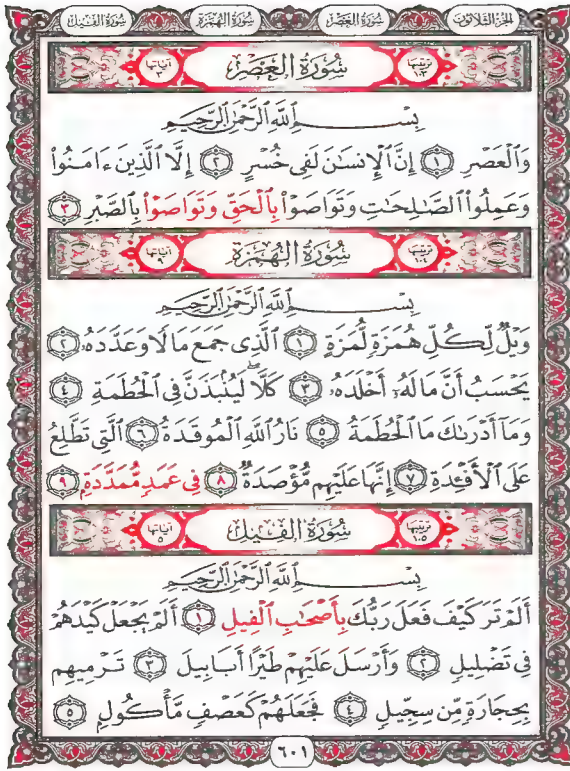 الجزء الثلاثون سورة العصر سورة الهمزة سورة الفيل
ترتيبها ١٠٣ سُورَةُ الْعَصْرِ آياتها ٣
بِسْمِ ٱللَّهِ ٱلرَّحْمَٰنِ ٱلرَّحِيمِ
وَٱلْعَصْرِ ١ إِنَّ ٱلْإِنسَٰنَ لَفِى خُسْرٍ ٢ إِلَّا ٱلَّذِينَ ءَامَنُوا۟
وَعَمِلُوا۟ ٱلصَّٰلِحَٰتِ وَتَوَاصَوْا۟ بِٱلْحَقِّ وَتَوَاصَوْا۟ بِٱلصَّبْرِ ٣
ترتيبها ١٠٤ سُورَةُ الْهُمَزَةِ آياتها ٩
بِسْمِ ٱللَّهِ ٱلرَّحْمَٰنِ ٱلرَّحِيمِ
وَيْلٌ لِّكُلِّ هُمَزَةٍ لُّمَزَةٍ ١ ٱلَّذِى جَمَعَ مَالًا وَعَدَّدَهُۥ ٢
يَحْسَبُ أَنَّ مَالَهُۥٓ أَخْلَدَهُۥ ٣ كَلَّا ۖ لَيُنۢبَذَنَّ فِى ٱلْحُطَمَةِ ٤
وَمَآ أَدْرَىٰكَ مَا ٱلْحُطَمَةُ ٥ نَارُ ٱللَّهِ ٱلْمُوقَدَةُ ٦ ٱلَّتِى تَطَّلِعُ
عَلَى ٱلْأَفْـِٔدَةِ ٧ إِنَّهَا عَلَيْهِم مُّؤْصَدَةٌ ٨ فِى عَمَدٍ مُّمَدَّدَةٍۭ ٩
ترتيبها ١٠٥ سُورَةُ الْفِيلِ آياتها ٥
بِسْمِ ٱللَّهِ ٱلرَّحْمَٰنِ ٱلرَّحِيمِ
أَلَمْ تَرَ كَيْفَ فَعَلَ رَبُّكَ بِأَصْحَٰبِ ٱلْفِيلِ ١ أَلَمْ يَجْعَلْ كَيْدَهُمْ
فِى تَضْلِيلٍ ٢ وَأَرْسَلَ عَلَيْهِمْ طَيْرًا أَبَابِيلَ ٣ تَرْمِيهِم
بِحِجَارَةٍ مِّن سِجِّيلٍ ٤ فَجَعَلَهُمْ كَعَصْفٍ مَّأْكُولٍۭ ٥
٦٠١